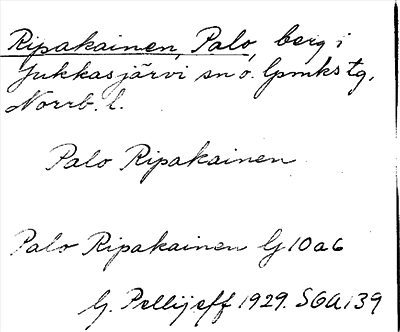 Ripakainen, Palo, berg i
Jukkasjärvi sn o. lpmks tg,
Norrb. l.
Palo Ripakainen
Palo Ripakainen G10a6
G. Pellijeff 1929. SGA 139